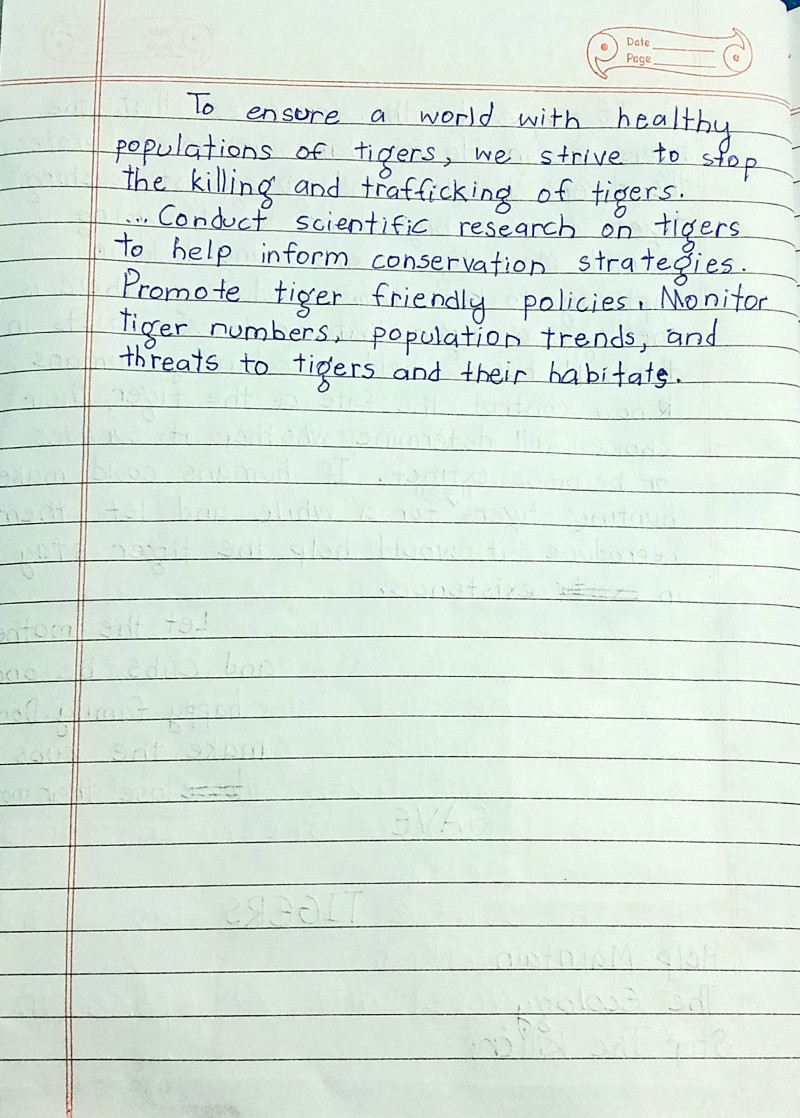 Date
Page
To ensure a world with healthy
populations of tigers, we strive to stop
the killing and trafficking of tigers.
... Conduct scientific research on tigers
to help inform conservation strategies.
Promote tiger friendly policies. Monitor
tiger numbers, population trends, and
threats to tigers and their habitats.